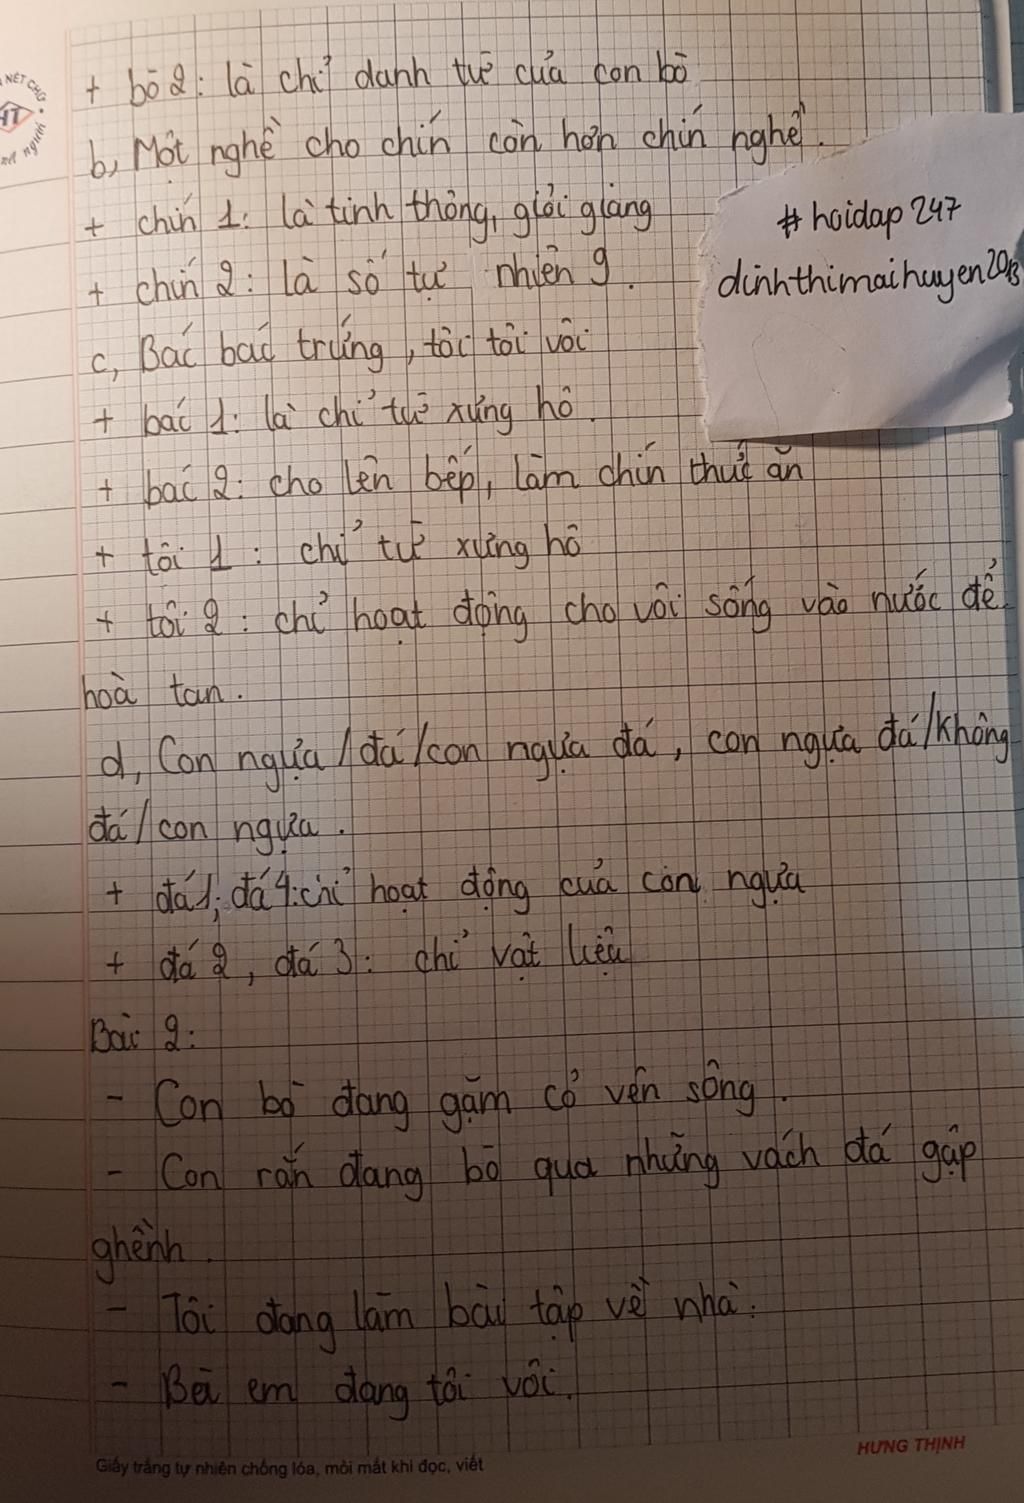 NÉT CHỮ
HT
nết người
+ bò 2: là chỉ danh từ của con bò
b, Một nghề cho chín còn hơn chín nghề.
+ chín 1: là tinh thông, giỏi giang
# hoidap 247
+ chín 2: là số tự nhiên 9.
dinhthimaihuyen2013
c, Bác bác trứng, tôi tôi vôi
+ bác 1: là chỉ từ xưng hô.
+ bác 2: cho lên bếp, làm chín thức ăn
+ tôi 1: chỉ từ xưng hô
+ tôi 2: chỉ hoạt động cho vôi sống vào nước để
hoà tan.
d, Con ngựa/đá/con ngựa đá, con ngựa đá/không
đá/con ngựa.
+ đá 1; đá 4: chỉ hoạt động của con ngựa
+ đá 2, đá 3: chỉ vật liệu
Bài 2:
- Con bò đang gặm cỏ vên sông.
- Con rắn đang bò qua những vách đá gập
ghềnh.
- Tôi đang làm bài tập về nhà.
- Bà em đang tôi vôi.
HƯNG THỊNH
Giấy trắng tự nhiên chống lóa, mỏi mắt khi đọc, viết